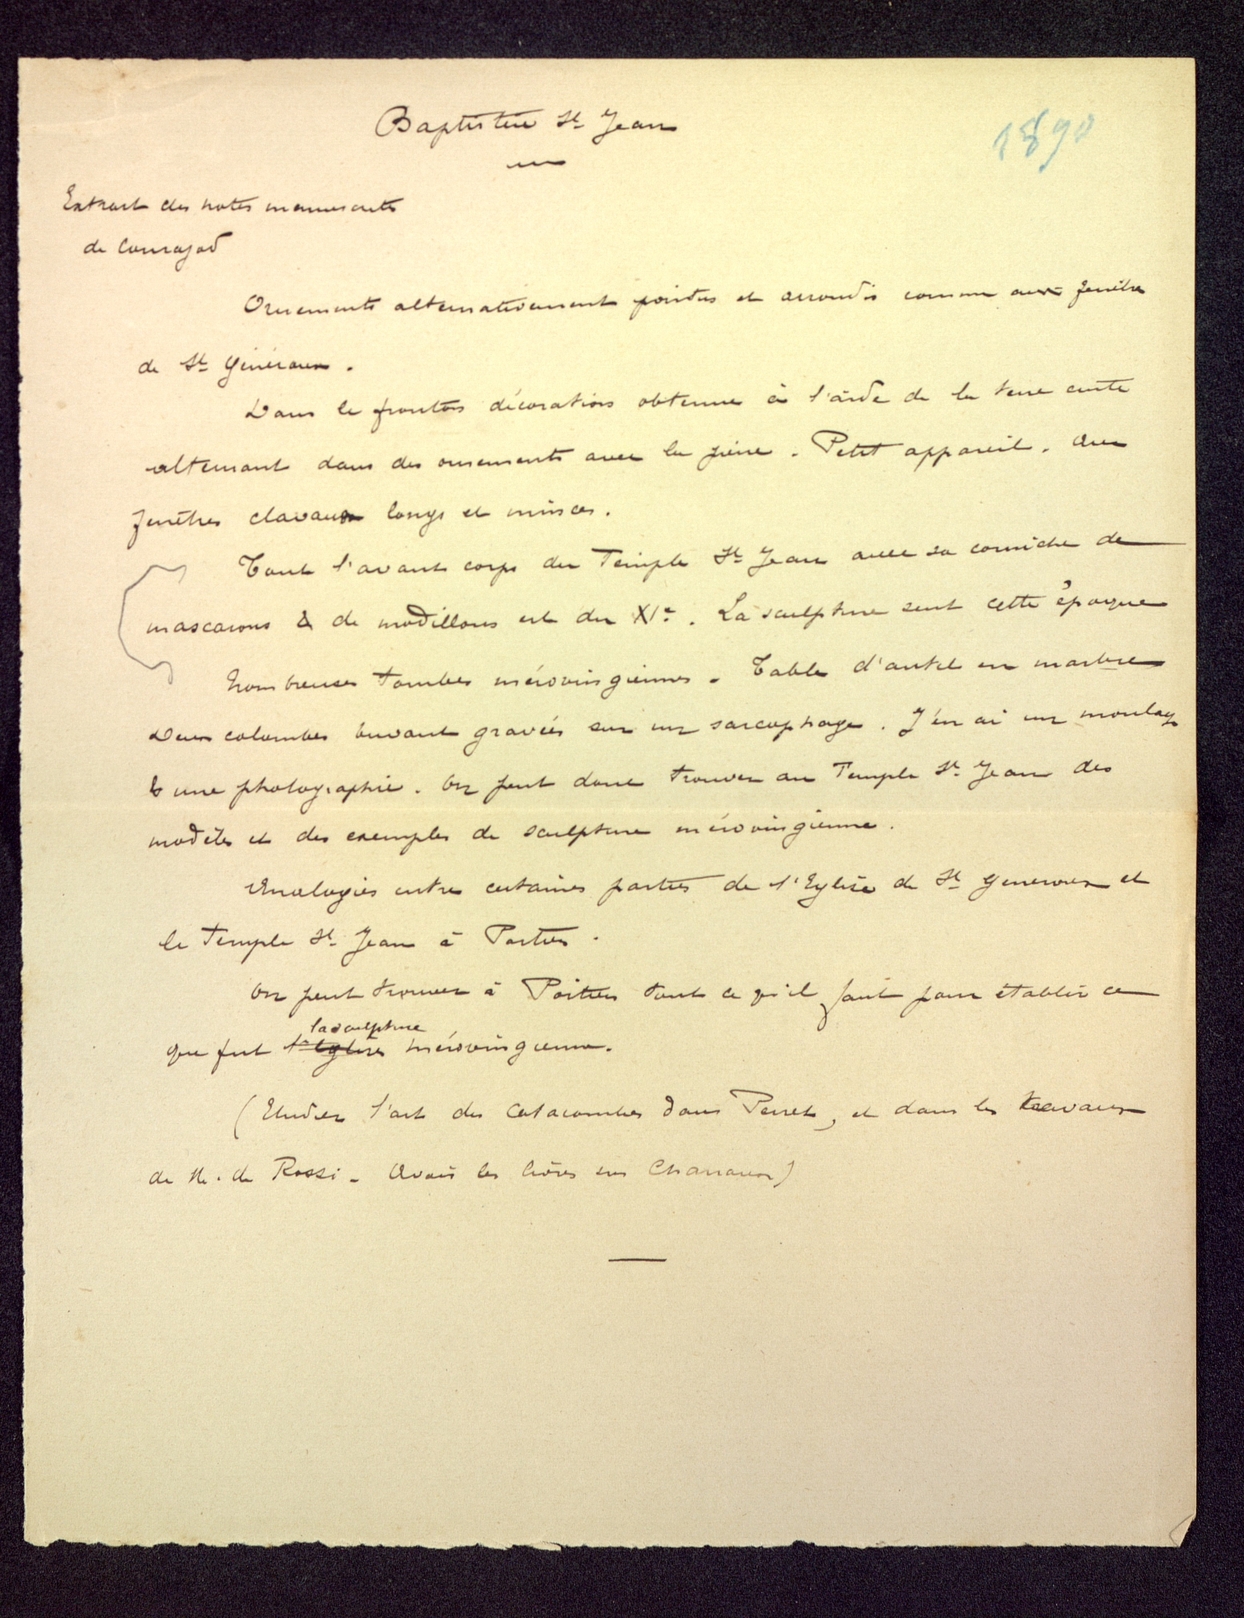 Baptistère St Jean
1890
Extrait des notes manuscrites
de Courajod
Ornements alternativement pointus et arrondis comme aux fenêtres
de St Généroux.
Dans le fronton décoration obtenue à l'aide de la terre cuite
alternant dans des ornements avec la pierre. Petit appareil. Aux
fenêtres claveaux longs et minces.
Tout l'avant corps du Temple St Jean avec sa corniche de
mascarons & de modillons est du XIe. La sculpture sent cette époque
Nombreuses tombes mérovingiennes. Table d'autel en marbre
Deux colombes buvant gravées sur un sarcophage. J'en ai un moulage
& une photographie. On peut donc trouver au Temple St Jean des
modèles et des exemples de sculpture mérovingienne.
Analogies entre certaines parties de l'Eglise de St Generoux et
le Temple St Jean à Poitiers.
On peut trouver à Poitiers tout ce qu'il faut pour établir ce
la sculpture
que fut l'Eglise mérovingienne.
(Etudier l'art des Catacombes dans Perret, et dans les travaux
de M. de Rossi. Avoir les livres sur Charroux)